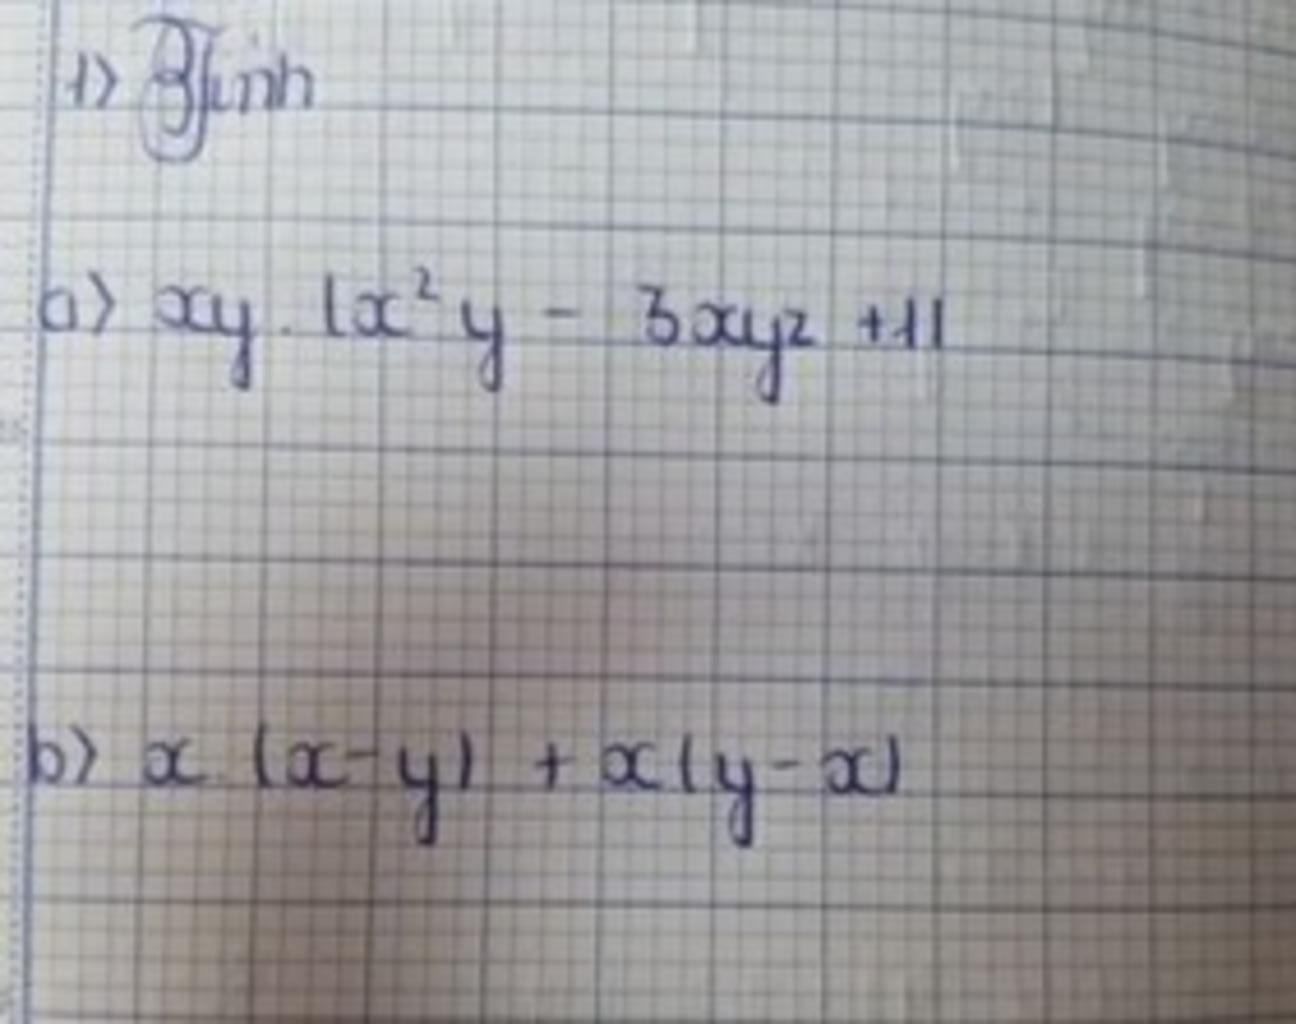 1) Tính
a) xy. (x²y - 3xyz +1)
b) x (x-y) + x(y-x)